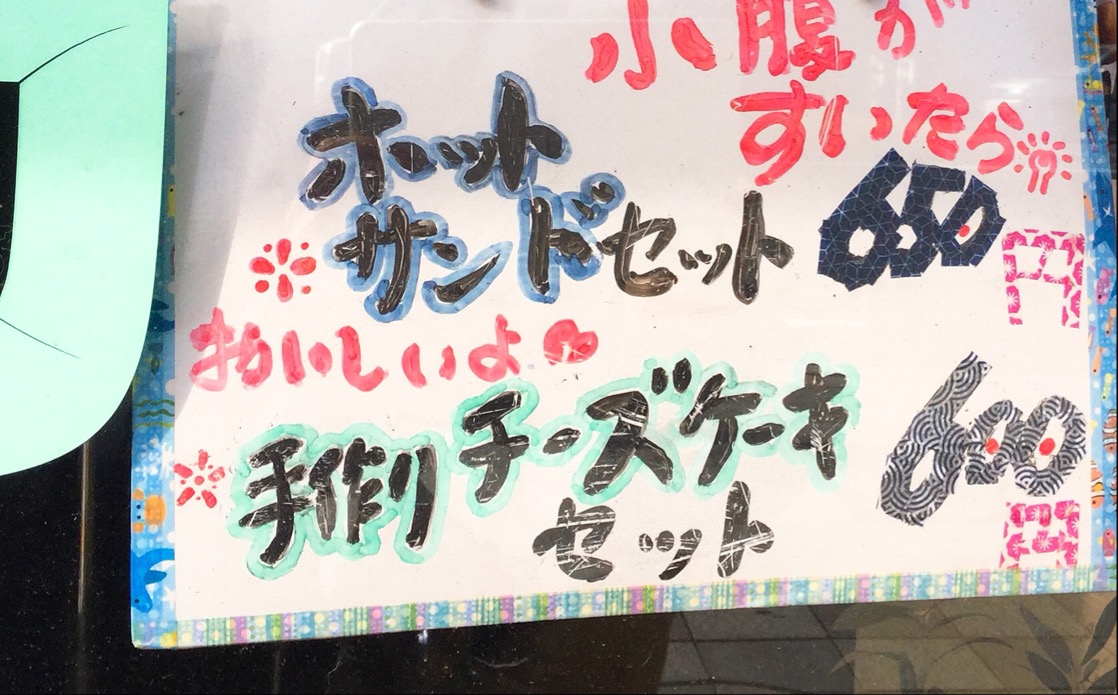 小腹が
すいたら
ホット
サンドセット 650円
おいしいよ
手作りチーズケーキ
セット 600円